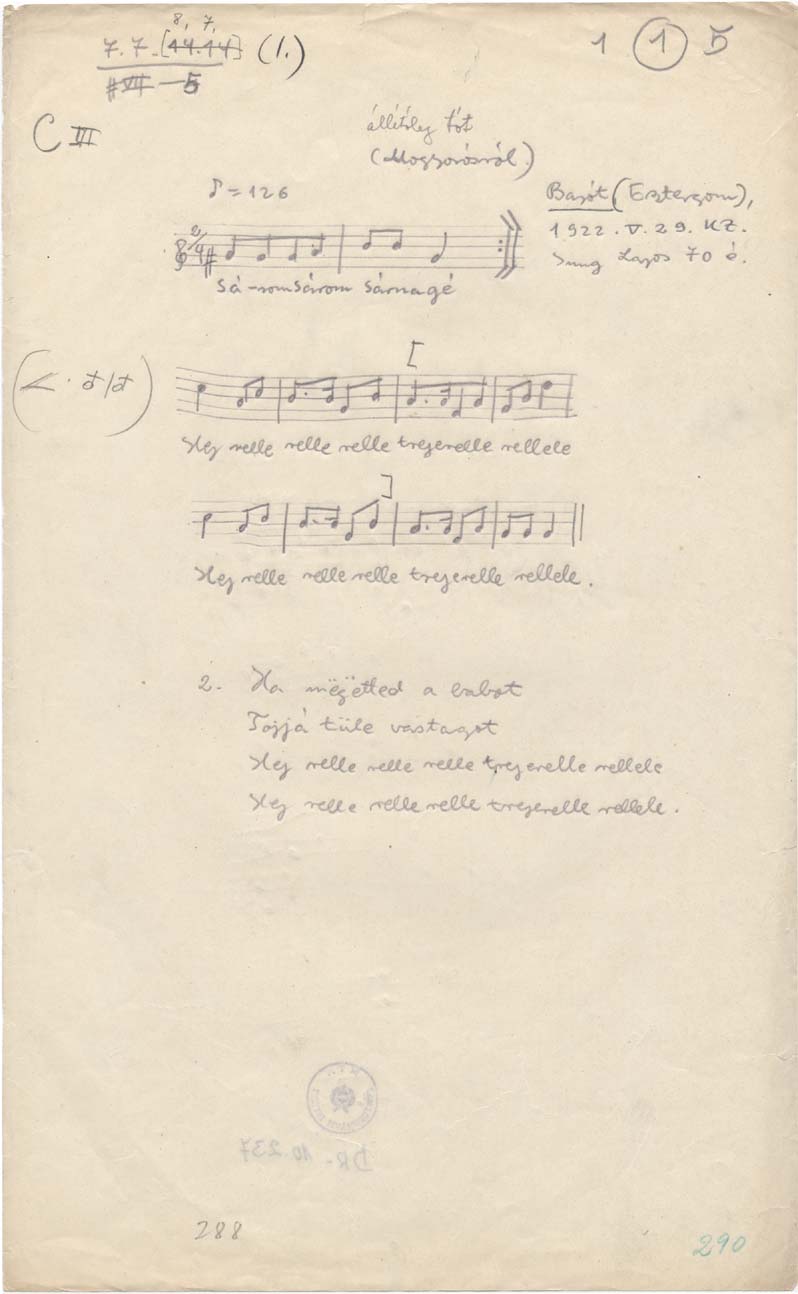 8, 7,
7. 7. [14.14] (1.)
1 1 5
#VII — 5
C III
állítólag tót
(Mogyorósról.)
♪ = 126
Bajót (Esztergom),
1922. V. 29. KZ.
Jung Lajos 70 é.
2/4
Sá-romsárom sárnagé
Hej relle relle relle trejerelle rellele
Hej relle relle relle trejerelle rellele.
2. Ha mëgëtted a babot
Tojjá tüle vastagot
Hej relle relle relle trejerelle rellele
Hej relle relle relle trejerelle rellele.
DR-10.237
288
290